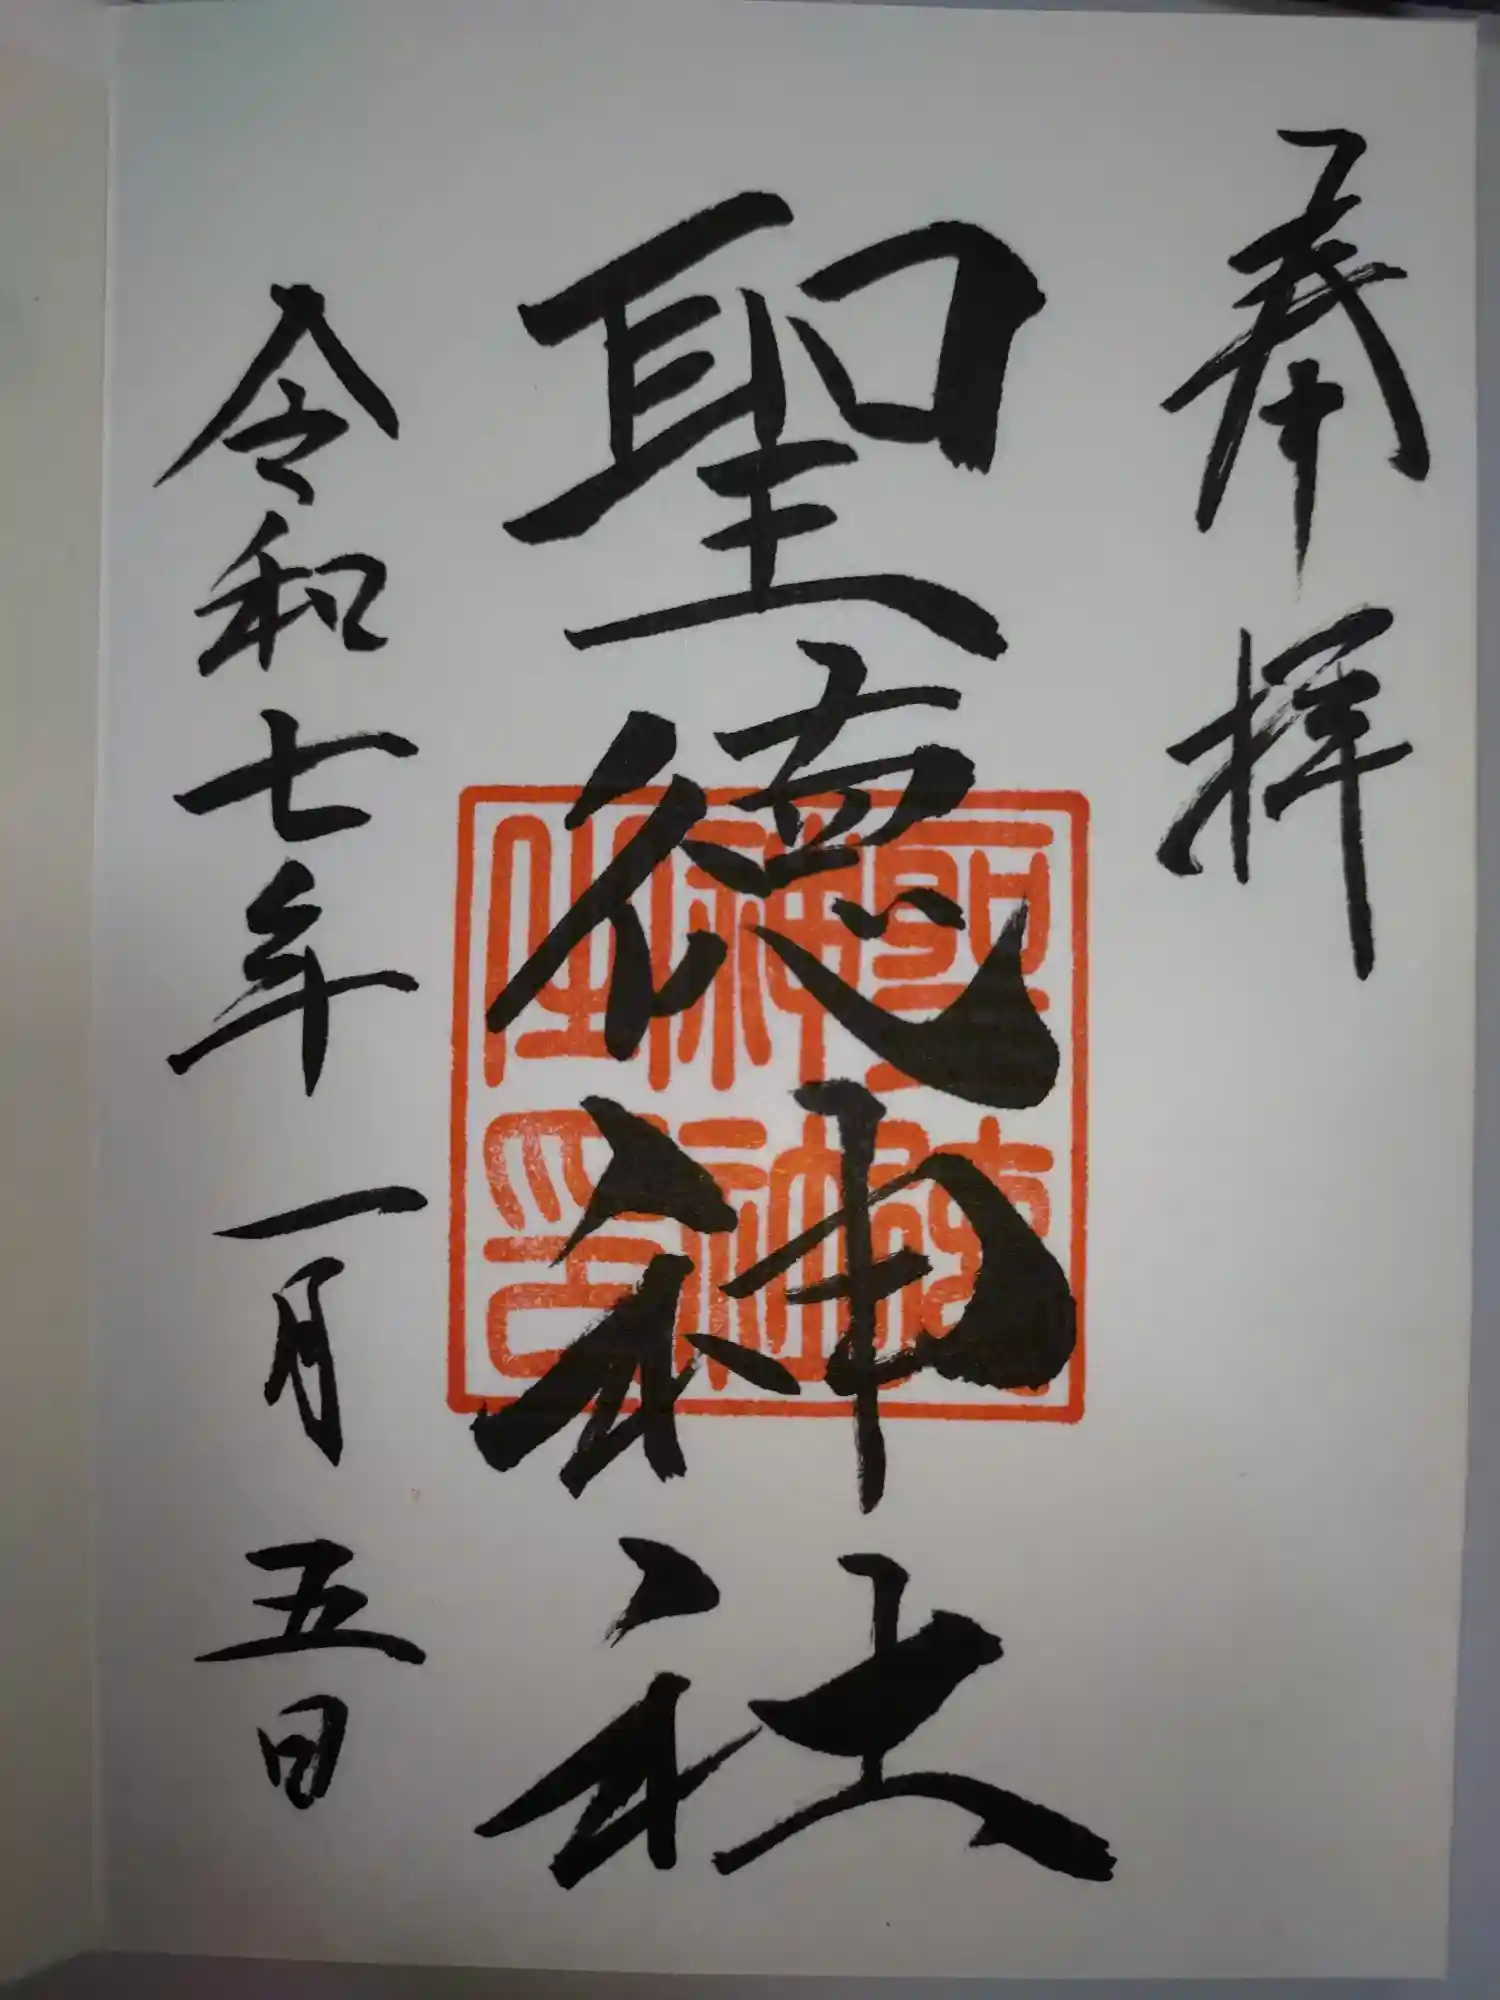 奉拝
聖徳神社
聖徳
神社
之印
令和七年一月五日